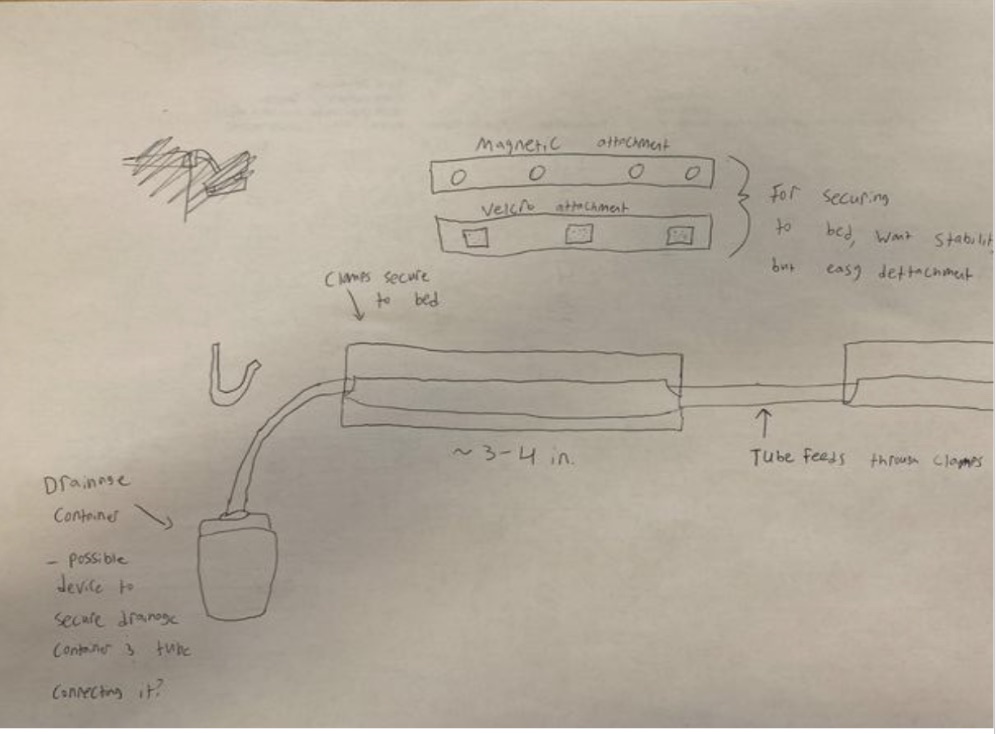 Magnetic attachment
Velcro attachment
For securing
to bed, want stabilit
but easy dettachment
Clamps secure
to bed
~ 3-4 in.
Tube feeds through clamps
Drainage
Container
- possible
device to
secure drainage
container & tube
connecting it?